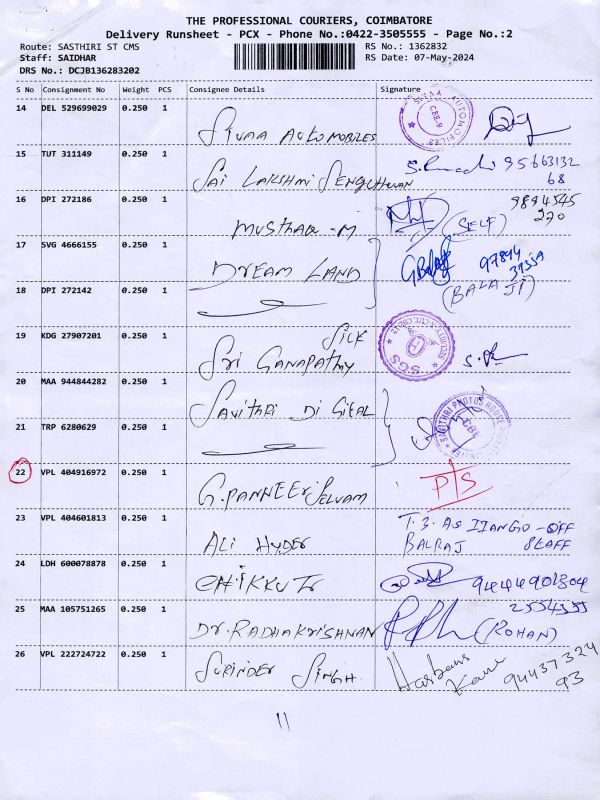 THE PROFESSIONAL COURIERS, COIMBATORE
Delivery Runsheet - PCX - Phone No.:0422-3505555 - Page No.:2
Route: SASTHIRI ST CMS
Staff: SAIDHAR
DRS No.: DCJB136283202
RS No.: 1362832
RS Date: 07-May-2024
S No Consignment No Weight PCS Consignee Details Signature
14 DEL 529699029 0.250 1
SIVAA AUTOMOBILES
SIVAA AUTOMOBILES CBE-9
15 TUT 311149 0.250 1
SAI LAKSHMI
95663132
68
16 DPI 272186 0.250 1
MUSTHAQ -M
(SELF)
9894545
270
17 SVG 4666155 0.250 1
DREAM LAND
97894
(BALAJI)
18 DPI 272142 0.250 1
19 KDG 27907201 0.250 1
SRI GANAPATHY SILK
SGS
20 MAA 944844282 0.250 1
SAVITHRI DIGITAL
21 TRP 6280629 0.250 1
22 VPL 404916972 0.250 1
G. PANNEERSELVAM
P/S
23 VPL 404601813 0.250 1
ALI HYDER
BALRAJ STAFF
24 LDH 600078878 0.250 1
25 MAA 105751265 0.250 1
DR. RADHAKRISHNAN
2554355
(ROHAN)
26 VPL 222724722 0.250 1
SURINDER SINGH.
Harbans Kaur
94437324
93
11